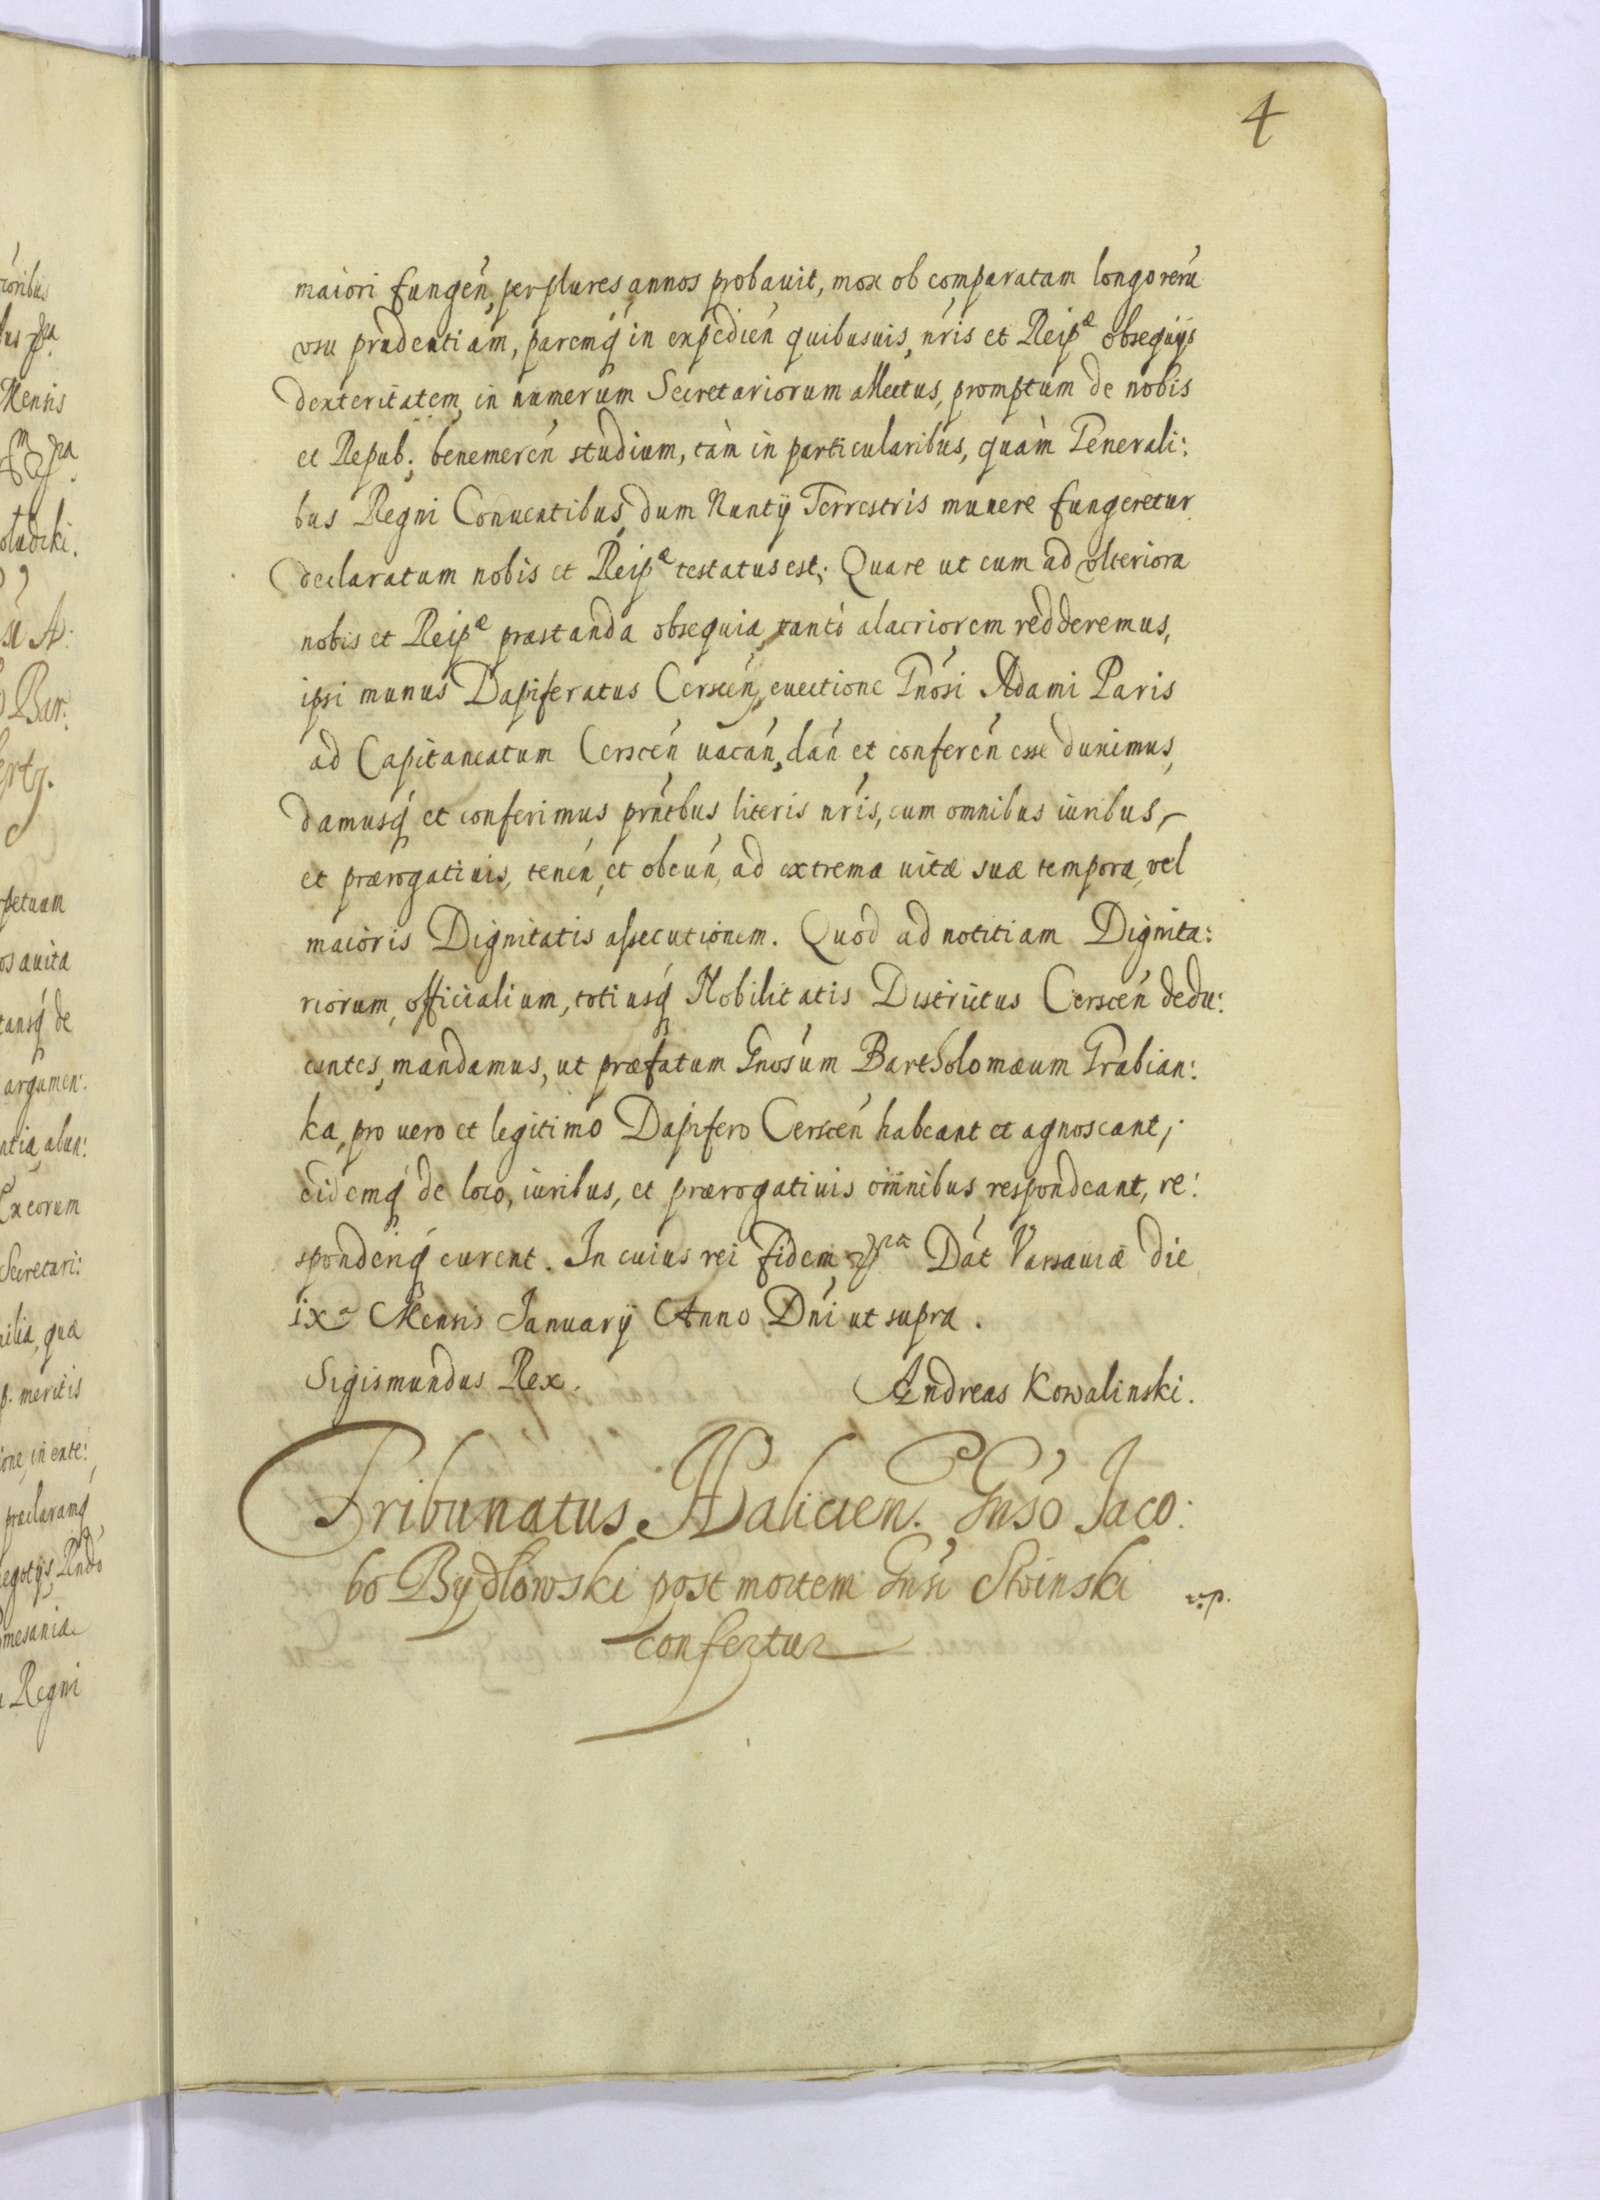 4
maiori fungen̄, per plures annos probavit, mox ob comparatam longo rerū
usu prudentiam, paremq́ in expedien̄ quibusuis, nr̄is et Reipᵉ obsequijs
dexteritatem, in numerum Secretariorum allectus, promptum de nobis
et Repub: benemeren̄ studium, tàm in particularibus, quàm Generali:
bus Regni Conventibus, dum Nuntÿ Terrestris munere fungeretur
declaratum nobis et Reipᵉ testatus est; Quare ut eum ad ulteriora
nobis et Reipᵉ præstanda obsequia, tantò alacriorem redderemus,
ipsi munus Dapiferatus Cerscen̄, euectione Gn̄osi Adami Paris
ad Capitaneatum Cerscen̄ uacan̄, dan̄ et conferen̄ esse duximus,
damusq́ et conferimus prn̄tbus literis nr̄is, cum omnibus iuribus,
et prærogatiuis, tenen̄, et obeun̄, ad extrema uitæ suæ tempora, vel
maioris Dignitatis assecutionem. Quod ad notitiam Dignita:
riorum, officialium, totiusq́ Nobilitatis Districtus Cerscen̄ dedu:
centes, mandamus, ut præfatum Gnosum Bartholomæum Grabian:
ka, pro uero et legitimo Dapifero Cerscen̄ habeant et agnoscant,
eidemq́ de loco, iuribus, et prærogatiuis omnibus respondeant, re:
sponderiq́ curent. In cuius rei fidem Dat Varsauiæ die
ixᵃ Mensis Januarÿ Anno Dn̄i ut supra.
Sigismundus Rex. Andreas Kowalinski.
Tribunatus Halicien. Gn̄so Jaco:
bo Bydłowski post mortem Gn̄si Siwinski
confertur